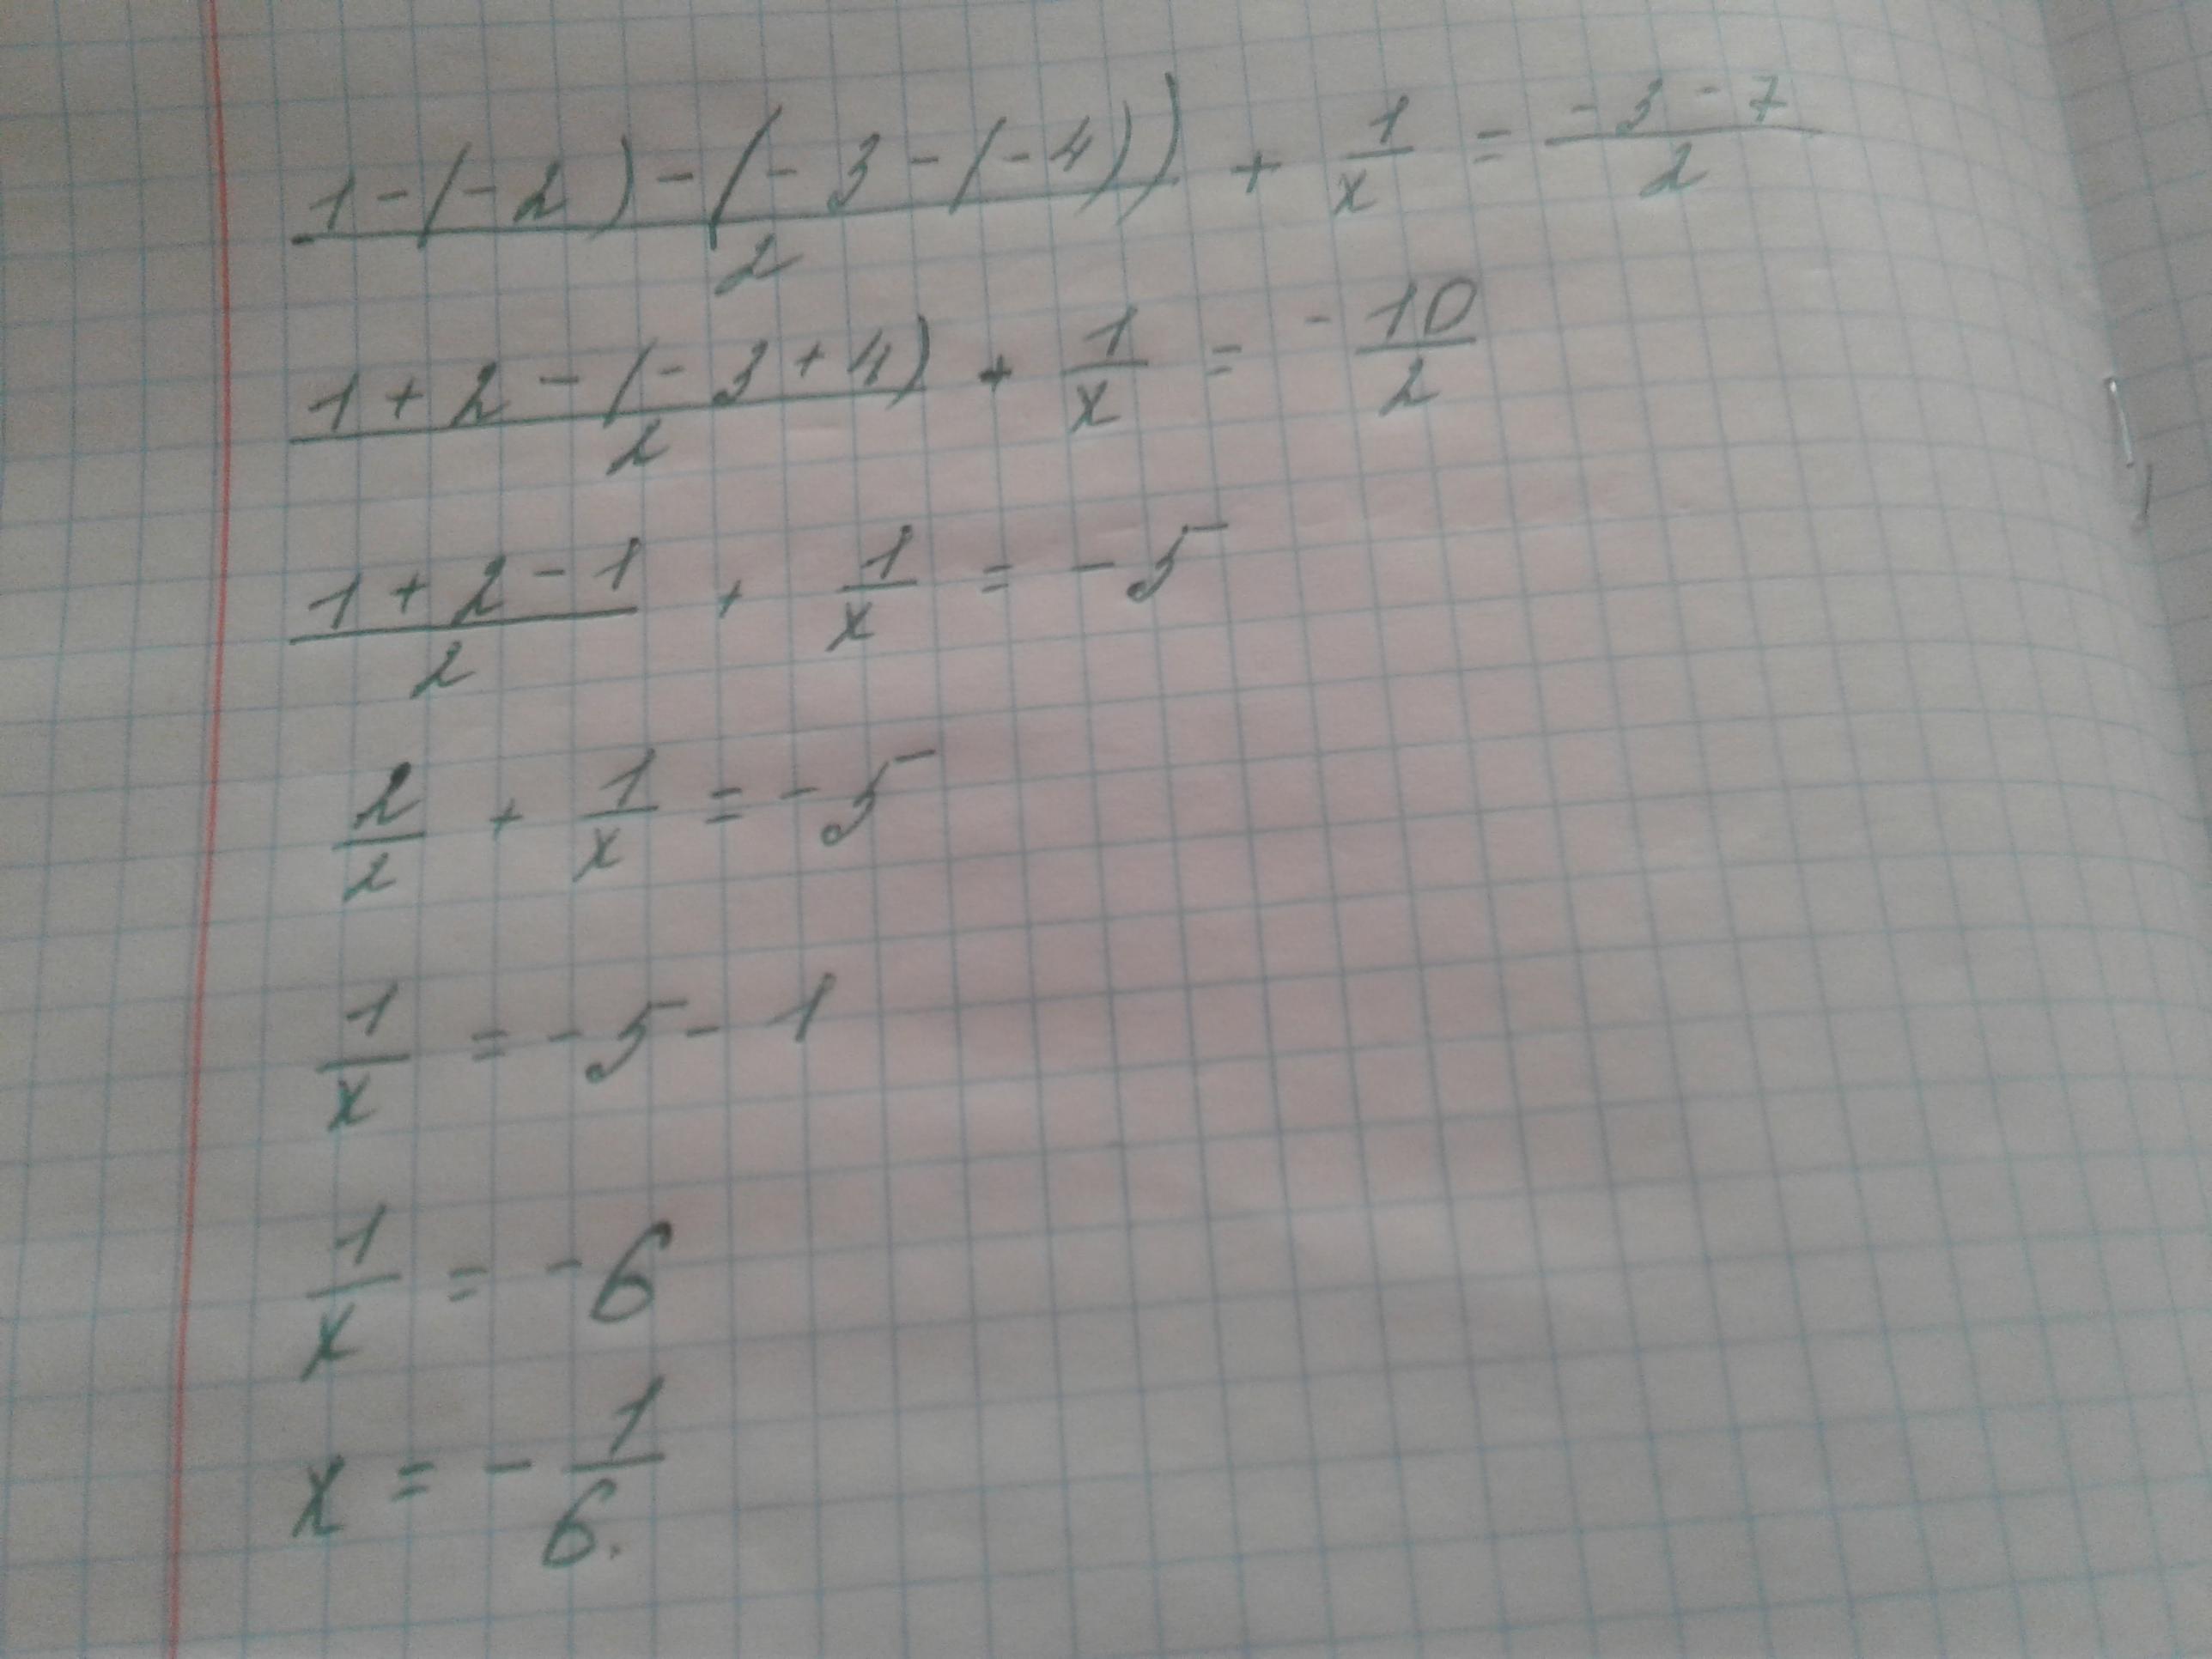 (1-(-2)-(-3-(-4)))/2 + 1/x = (-3-7)/2
(1+2-(-3+4))/2 + 1/x = -10/2
(1+2-1)/2 + 1/x = -5
2/2 + 1/x = -5
1/x = -5-1
1/x = -6
x = -1/6.